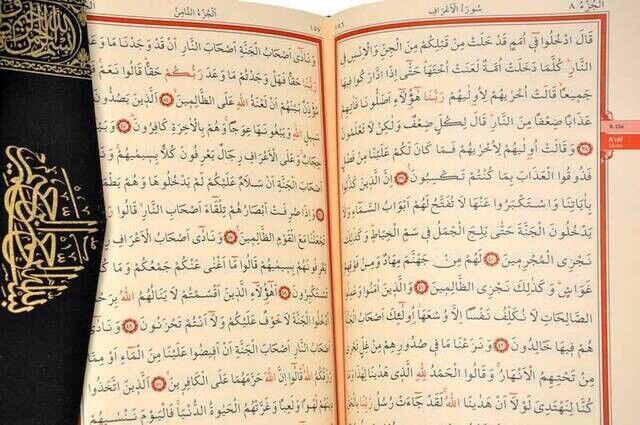 اَلْجُزْءُ ٨
سُورَةُ الْاَعْرَافِ
قَالَ ادْخُلُوا فٖٓي اُمَمٍ قَدْ خَلَتْ مِنْ قَبْلِكُمْ مِنَ الْجِنِّ وَالْاِنْسِ فِي
النَّارِ كُلَّمَا دَخَلَتْ اُمَّةٌ لَعَنَتْ اُخْتَهَا حَتّٰٓى اِذَا ادَّارَكُوا فٖيهَا
جَمٖيعًا قَالَتْ اُخْرٰيهُمْ لِاُو۫لٰيهُمْ رَبَّنَا هٰٓؤُ۬لَٓاءِ اَضَلُّونَا فَاٰتِهِمْ
عَذَابًا ضِعْفًا مِنَ النَّارِ قَالَ لِكُلٍّ ضِعْفٌ وَلٰكِنْ لَا تَعْلَمُونَ
﴿٣٨﴾ وَقَالَتْ اُو۫لٰيهُمْ لِاُخْرٰيهُمْ فَمَا كَانَ لَكُمْ عَلَيْنَا مِنْ فَضْلٍ
فَذُوقُوا الْعَذَابَ بِمَا كُنْتُمْ تَكْسِبُونَ ﴿٣٩﴾ اِنَّ الَّذٖينَ كَذَّبُوا
بِاٰيَاتِنَا وَاسْتَكْبَرُوا عَنْهَا لَا تُفَتَّحُ لَهُمْ اَبْوَابُ السَّمَٓاءِ وَلَا
يَدْخُلُونَ الْجَنَّةَ حَتّٰى يَلِجَ الْجَمَلُ فٖي سَمِّ الْخِيَاطِ وَكَذٰلِكَ
نَجْزِي الْمُجْرِمٖينَ ﴿٤٠﴾ لَهُمْ مِنْ جَهَنَّمَ مِهَادٌ وَمِنْ فَوْقِهِمْ
غَوَاشٍ وَكَذٰلِكَ نَجْزِي الظَّالِمٖينَ ﴿٤١﴾ وَالَّذٖينَ اٰمَنُوا وَعَمِلُوا
الصَّالِحَاتِ لَا نُكَلِّفُ نَفْسًا اِلَّا وُسْعَهَا اُو۬لٰٓئِكَ اَصْحَابُ الْجَنَّةِ
هُمْ فٖيهَا خَالِدُونَ ﴿٤٢﴾ وَنَزَعْنَا مَا فٖي صُدُورِهِمْ مِنْ غِلٍّ تَجْرٖي
مِنْ تَحْتِهِمُ الْاَنْهَارُ وَقَالُوا الْحَمْدُ لِلّٰهِ الَّذٖي هَدٰينَا لِهٰذَا وَمَا
كُنَّا لِنَهْتَدِيَ لَوْلَٓا اَنْ هَدٰينَا اللّٰهُ لَقَدْ جَٓاءَتْ رُسُلُ رَبِّنَا بِالْحَقِّ
8. Cüz
A'râf
Sûresi
اَلْجُزْءُ الثَّامِنُ
وَنَادٰٓى اَصْحَابُ الْجَنَّةِ اَصْحَابَ النَّارِ اَنْ قَدْ وَجَدْنَا مَا وَعَدَنَا
رَبُّنَا حَقًّا فَهَلْ وَجَدْتُمْ مَا وَعَدَ رَبُّكُمْ حَقًّا قَالُوا نَعَمْ
مُؤَذِّنٌ بَيْنَهُمْ اَنْ لَعْنَةُ اللّٰهِ عَلَى الظَّالِمٖينَ ﴿٤٤﴾ اَلَّذٖينَ يَصُدُّونَ
سَبٖيلِ اللّٰهِ وَيَبْغُونَهَا عِوَجًا وَهُمْ بِالْاٰخِرَةِ كَافِرُونَ ﴿٤٥﴾
حِجَابٌ وَعَلَى الْاَعْرَافِ رِجَالٌ يَعْرِفُونَ كُلًّا بِسٖيمٰيهُمْ وَنَادَوْا
اَصْحَابَ الْجَنَّةِ اَنْ سَلَامٌ عَلَيْكُمْ لَمْ يَدْخُلُوهَا وَهُمْ يَطْمَعُونَ
وَاِذَا صُرِفَتْ اَبْصَارُهُمْ تِلْقَٓاءَ اَصْحَابِ النَّارِ قَالُوا رَبَّنَا
تَجْعَلْنَا مَعَ الْقَوْمِ الظَّالِمٖينَ ﴿٤٧﴾ وَنَادٰٓى اَصْحَابُ الْاَعْرَافِ
يَعْرِفُونَهُمْ بِسٖيمٰيهُمْ قَالُوا مَٓا اَغْنٰى عَنْكُمْ جَمْعُكُمْ وَمَا كُنْتُمْ
تَسْتَكْبِرُونَ ﴿٤٨﴾ اَهٰٓؤُ۬لَٓاءِ الَّذٖينَ اَقْسَمْتُمْ لَا يَنَالُهُمُ اللّٰهُ بِرَحْمَةٍ
اُدْخُلُوا الْجَنَّةَ لَا خَوْفٌ عَلَيْكُمْ وَلَٓا اَنْتُمْ تَحْزَنُونَ ﴿٤٩﴾ وَنَادٰٓى
اَصْحَابُ النَّارِ اَصْحَابَ الْجَنَّةِ اَنْ اَفٖيضُوا عَلَيْنَا مِنَ الْمَٓاءِ اَوْ مِمَّا
رَزَقَكُمُ اللّٰهُ قَالُٓوا اِنَّ اللّٰهَ حَرَّمَهُمَا عَلَى الْكَافِرٖينَ ﴿٥٠﴾ اَلَّذٖينَ اتَّخَذُوا
دٖينَهُمْ لَهْوًا وَلَعِبًا وَغَرَّتْهُمُ الْحَيٰوةُ الدُّنْيَا فَالْيَوْمَ نَنْسٰيهُمْ